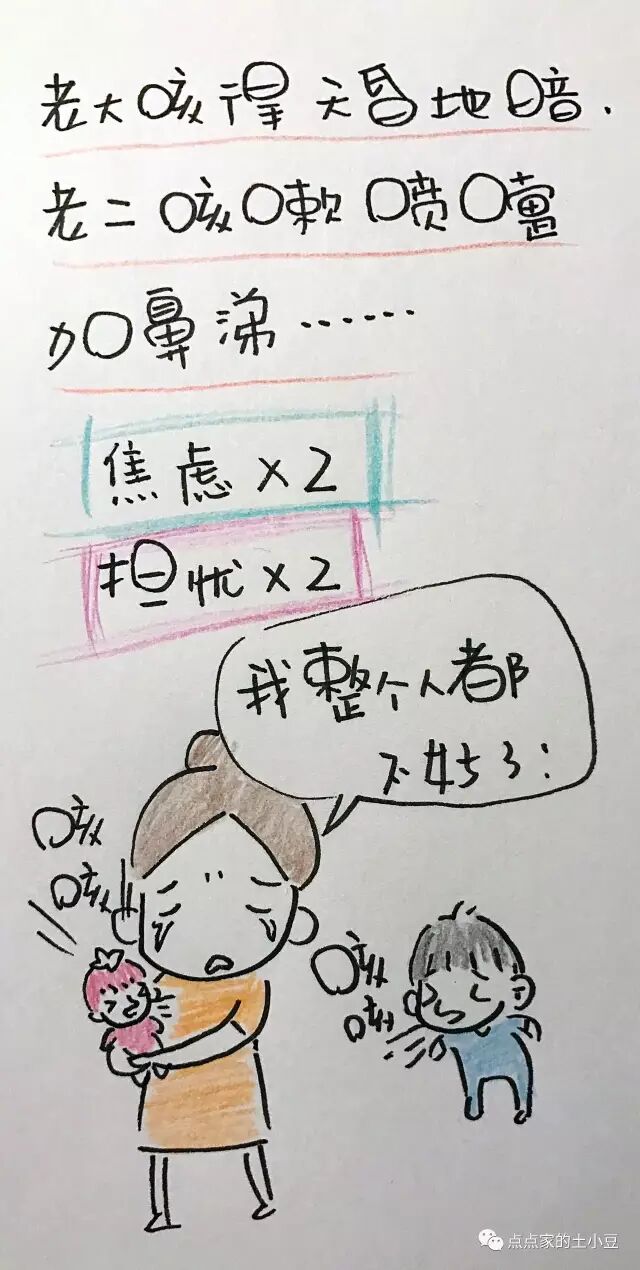 老大咳得天昏地暗.
老二咳嗽喷嚏
加鼻涕……
焦虑×2
担忧×2
我整个人都
不好了:
咳
咳
咳
咳
点点家的土小豆